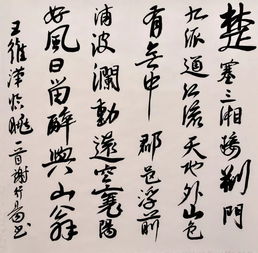 楚塞三湘接荆門
九派通江流天地外山色
有無中郡邑浮前
浦波瀾動遠空襄陽
好風日留醉與山翁
王維漢江临眺一首謝书